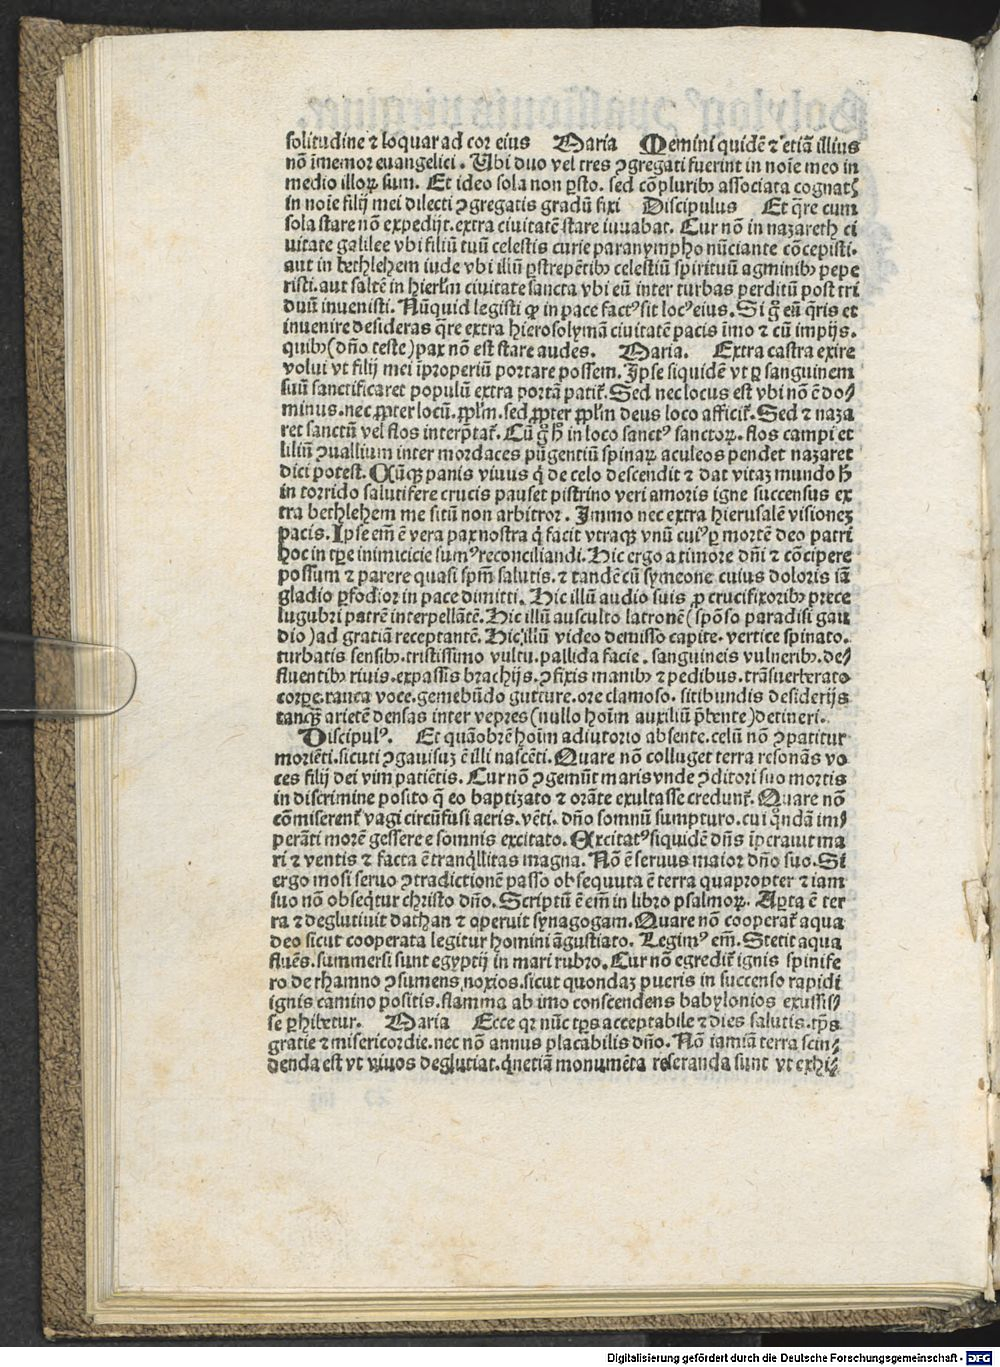 solitudine ⁊ loquar ad cor eius Maria Memini quidē ⁊ etiā illius
nō īmemor euangelici. Ubi duo vel tres ꝯgregati fuerint in noīe meo in
medio illoꝝ sum. Et ideo sola non p̱sto. sed cō pluribꝰ associata cognatꝭ
in noīe filij mei dilecti ꝯgregatis gradū fixi Discipulus Et q̄re cum
sola stare nō expedijt. extra ciuitatē stare iuuabat. Cur nō in nazareth ci
uitate galilee vbi filiū tuū celestis curie paranympho nūciante cōcepisti.
aut in bethlehem iude vbi illū ꝑstrepētibꝰ celestiū spirituū agminibꝰ pepe
risti. aut saltē in hierlm̄ ciuitate sancta vbi eū inter turbas perditū post tri
duū inuenisti. Nūquid legisti ꝙ in pace factꝰ sit locꝰ eius. Si g̊ eū q̄ris et
inuenire desideras q̄re extra hierosolymā ciuitatē pacis īmo ⁊ cū impijs.
quibꝰ (dn̄o teste) pax nō est stare audes. Maria. Extra castra exire
volui vt filij mei īproperiū portare possem. Ipse siquidē vt ꝑ sanguinem
suū sanctificaret populū extra portā patit̄. Sed nec locus est vbi nō ē do⸗
minus. nec ꝓpter locū. ꝓplm̄. sed ꝓpter ꝓplm̄ deus loco afficit̄. Sed ⁊ naza
ret sanctū vel flos interp̄tat̄. Cū g̊ h̄ in loco sanctꝰ sanctoꝝ. flos campi et
liliū ꝯuallium inter mordaces pūgentiū spinaꝝ aculeos pendet nazaret
dici potest. Cūqꝫ panis viuus q̇ de celo descendit ⁊ dat vitaꝫ mundo h̄
in torrido salutifere crucis pauset pistrino veri amoris igne succensus ex
tra bethlehem me sitū non arbitror. Immo nec extra hierusalē visioneꝫ
pacis. Ipse em̄ ē vera pax nostra q̇ facit vtraqꝫ vnū cuiꝰ ꝑ mortē deo patri
hoc in tp̄e inimicicie sumꝰ reconciliandi. Hic ergo a timore dn̄i ⁊ cōcipere
possum ⁊ parere quasi spm̄ salutis. ⁊ tandē cū symeone cuius doloris iā
gladio ꝑfodior in pace dimitti. Hic illū audio suis ꝓ crucifixoribꝰ prece
lugubri patrē interpellātē. Hic illū ausculto latronē (spōso paradisi gau
dio) ad gratiā receptantē. Hic illū video demisso capite. vertice spinato.
turbatis sensibꝰ. tristissimo vultu. pallida facie. sanguineis vulneribꝰ. de⸗
fluentibꝰ riuis. expassis brachijs. ꝯfixis manibꝰ ⁊ pedibus. trāsuerberato
corꝑe. rauca voce. gemebūdo gutture. ore clamoso. sitibundis desiderijs
tanqꝫ̄ arietē densas inter vepres (nullo hoīm auxiliū p̄bente) detineri.
Discipulꝰ. Et quāobrē hoīm adiutorio absente. celū nō ꝯpatitur
moriēti. sicuti ꝯgauisuꝫ ē illi nascēti. Quare nō colluget terra resonās vo
ces filij dei vim patiētis. Cur nō ꝯgemūt maris vnde ꝯditori suo mortis
in discrimine posito q̄ eo baptizato ⁊ orāte exultasse credunt̄. Quare nō
cōmiserent̄ vagi circūfusi aeris. vēti. dn̄o somnū sumpturo. cui q̊ndā im⸗
perāti morē gessere e somnis excitato. Excitatꝰ siquidē dn̄s īperauit ma
ri ⁊ ventis ⁊ facta ē tranq̇llitas magna. Nō ē seruus maior dn̄o suo. Si
ergo mosi seruo ꝯtradictionē passo obsequuta ē terra quapropter ⁊ iam
suo nō obseq̇tur christo dn̄o. Scriptū ē em̄ in libro psalmoꝝ. Aꝑta ē ter
ra ⁊ deglutiuit dathan ⁊ operuit synagogam. Quare nō cooperat̄ aqua
deo sicut cooperata legitur homini āgustiato. Legimꝰ em̄. Stetit aqua
fluēs. summersi sunt egyptij in mari rubro. Cur nō egredit̄ ignis spinife
ro de rhamno ꝯsumens noxios. sicut quondaꝫ pueris in succenso rapidi
ignis camino positis. flamma ab imo conscendens babylonios exussis⸗
se ꝑhibetur. Maria Ecce qꝛ nūc tp̄s acceptabile ⁊ dies salutis. tp̄s
gratie ⁊ misericordie. nec nō annus placabilis dn̄o. Nō iamiā terra scin⸗
denda est vt viuos deglutiat. q̇netiā monumēta reseranda sunt vt exhi⸗
Digitalisierung gefördert durch die Deutsche Forschungsgemeinschaft - DFG